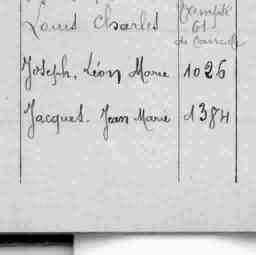 Louis Charles
Exempté
61
de Cavaca
Joseph, Léon Marie 1026
Jacques. Jean Marie 1384